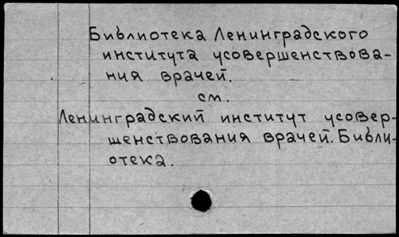 Библиотека Ленинградского
института усовершенствова-
ния врачей.
см.
Ленинградский институт усовер-
шенствования врачей. Библи-
отека.